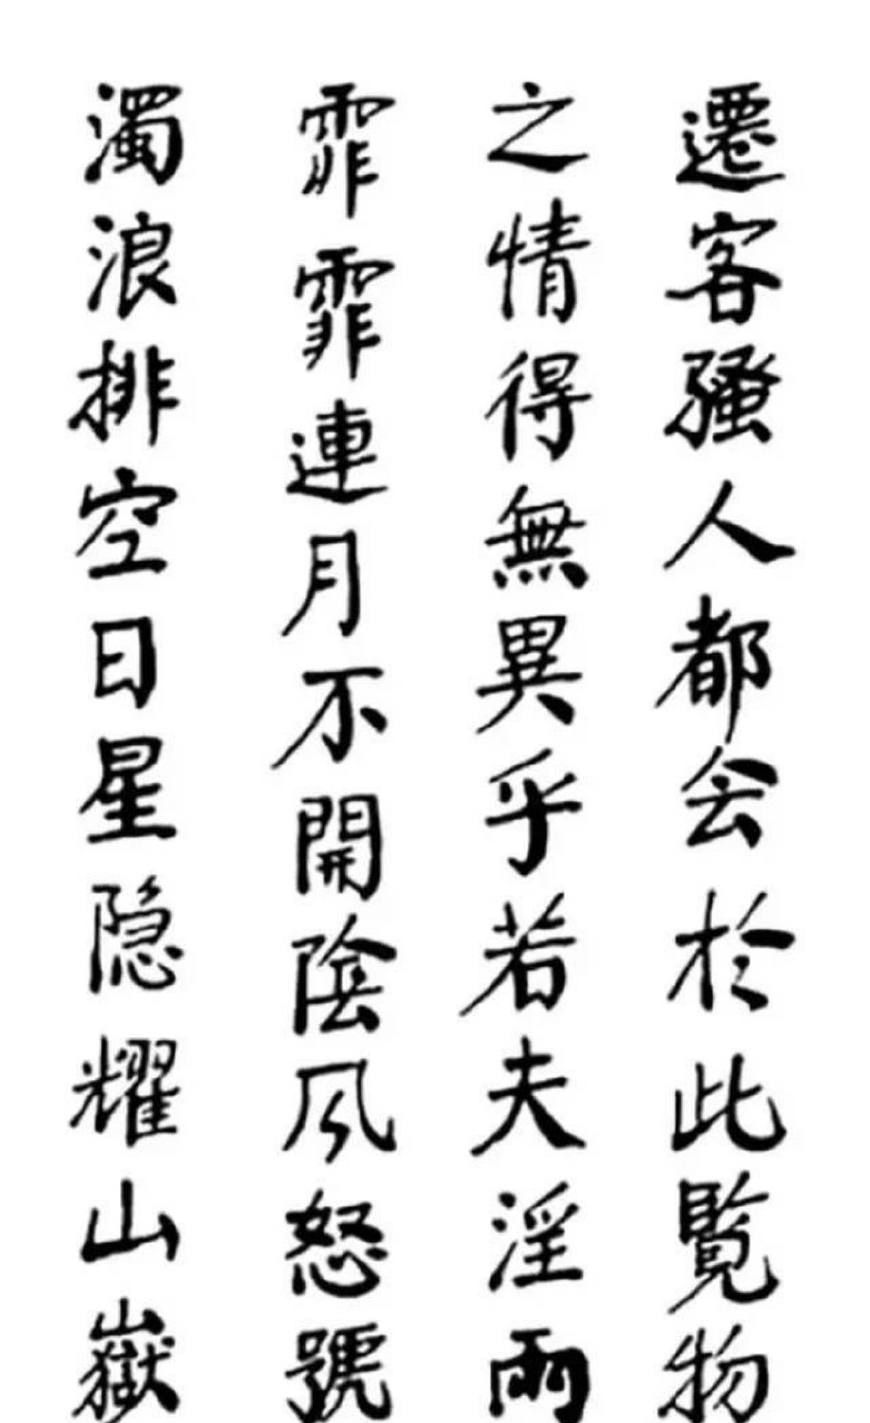 遷客騷人都会於此覽物
之情得無異乎若夫淫雨
霏霏連月不開陰风怒號
濁浪排空日星隐耀山嶽